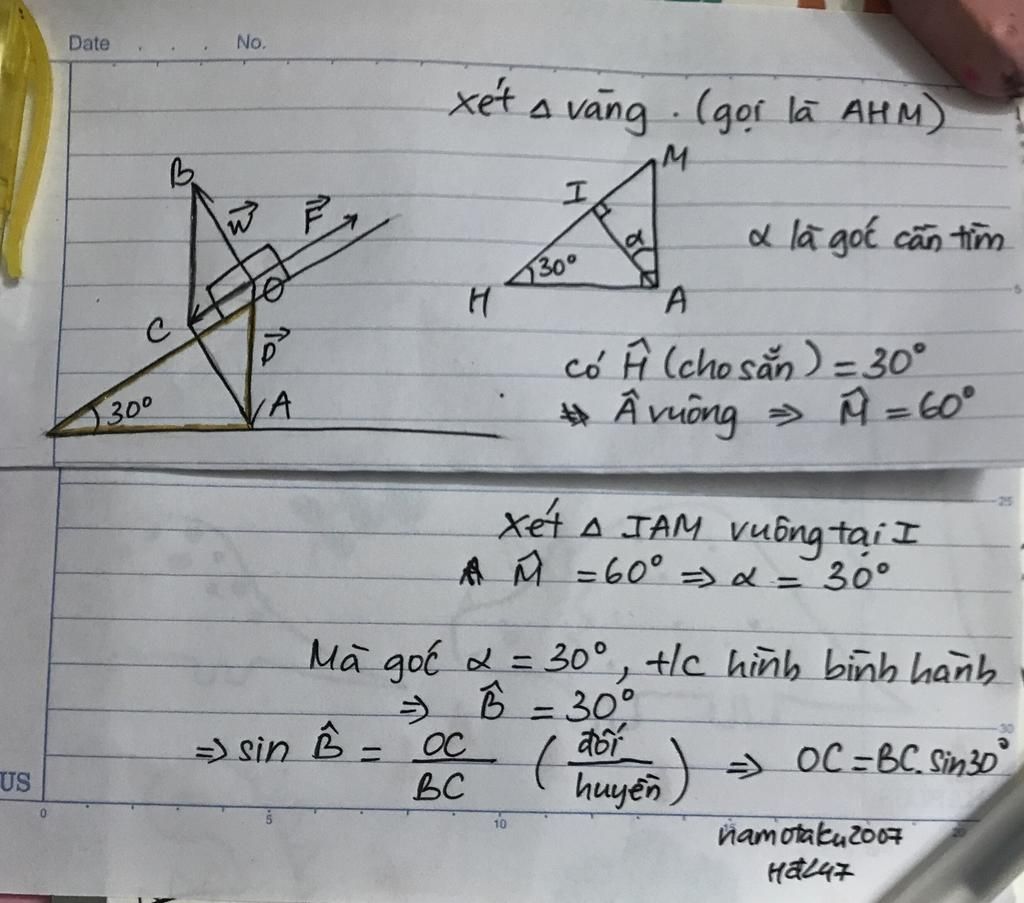 Date . . . No.
Xét Δ vàng. (gọi là AHM)
B
W
F
O
C
P
30°
A
M
I
α
30°
H
A
α là góc cần tìm
có Ĥ (cho sẵn) = 30°
Â vuông ⇒ M̂ = 60°
5
25
Xét Δ IAM vuông tại I
M̂ = 60° ⇒ α = 30°
Mà góc α = 30°, t/c hình bình hành
⇒ B̂ = 30°
⇒ sin B̂ = OC/BC (đối/huyền) ⇒ OC = BC.sin30°
30
US
0 5 10 20
namotaku2007